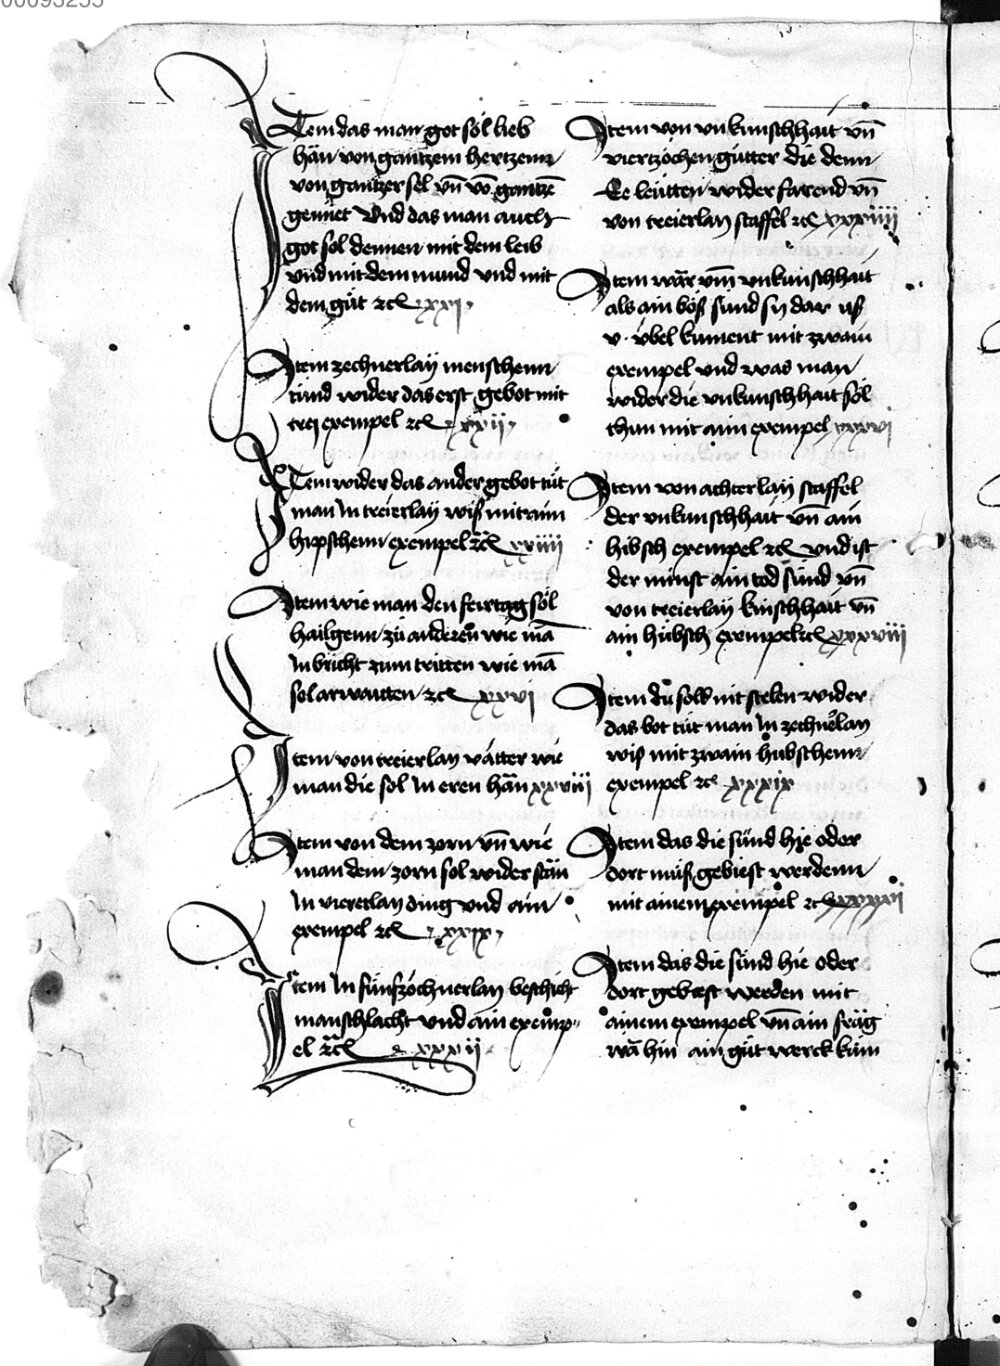 00093255
Item das man got sol lieb
hān von gantzem hertzenn
von gantzer sel vn̄ vō gantzē
gemiet Vnd das man auch
got sol dennen mit dem leib
vnd mit dem mund vnd mit
dem gůt ꝛc xxi
Item zechnerlaÿ menschenn
tŭnd wider das erst gebot mit
treÿ exempel ꝛc xxii
Item wider das ander gebot tůt
man In treierlaÿ wiß mit aim
hipschenn exempel ꝛc xxiiii
Item wie man den feirtag sol
hailgenn zů anderen wie mā
In bricht zum tritten wie mā
sol arwaitten ꝛc xxvi
Item von treierlay vätter wie
man die sol In eren hān xxviii
Item von dem zorn vn̄ wie
man dem zorn sol wider stān
In vieretlay ding vnd ain
exempel ꝛc xxix
Item In fünfzöchnerlay beschicht
manschlacht vnd ain exemp
el ꝛc xxxii
Item von vnkunschhait vn̄
viertzöchen gůtter die denn
Ee leütten wider farend vn̄
von treierlay staffel ꝛc xxxiiii
Item wār vm̄ vnkunschhait
als ain böß sünd sÿ dar uß
v. vbel kument mit zwain
exempel vnd was man
wider die vnkunschhait sol
thun mit aim exempel xxxvi
Item von achterlaÿ staffel
der vnkunschhait vn̄ ain
hibsch exempel ꝛc vnd ist
der minst ain tod sünd vn̄
von treierlaÿ kinschhait vn̄
ain hübsch exempel ꝛc xxxviii
Item du solt nit stelen wider
das bot tůt man In zechn͛lay
wiß mit zwain hubschenn
exempel ꝛc xxxix
Item das die sünd hie oder
dort můß gebiest werdenn
mit ainem exempel ꝛc
Item das die sünd hie oder
dort gebiest werden mit
ainem exempel vn̄ ain frāg
wā hin ain gůt werck kŭm